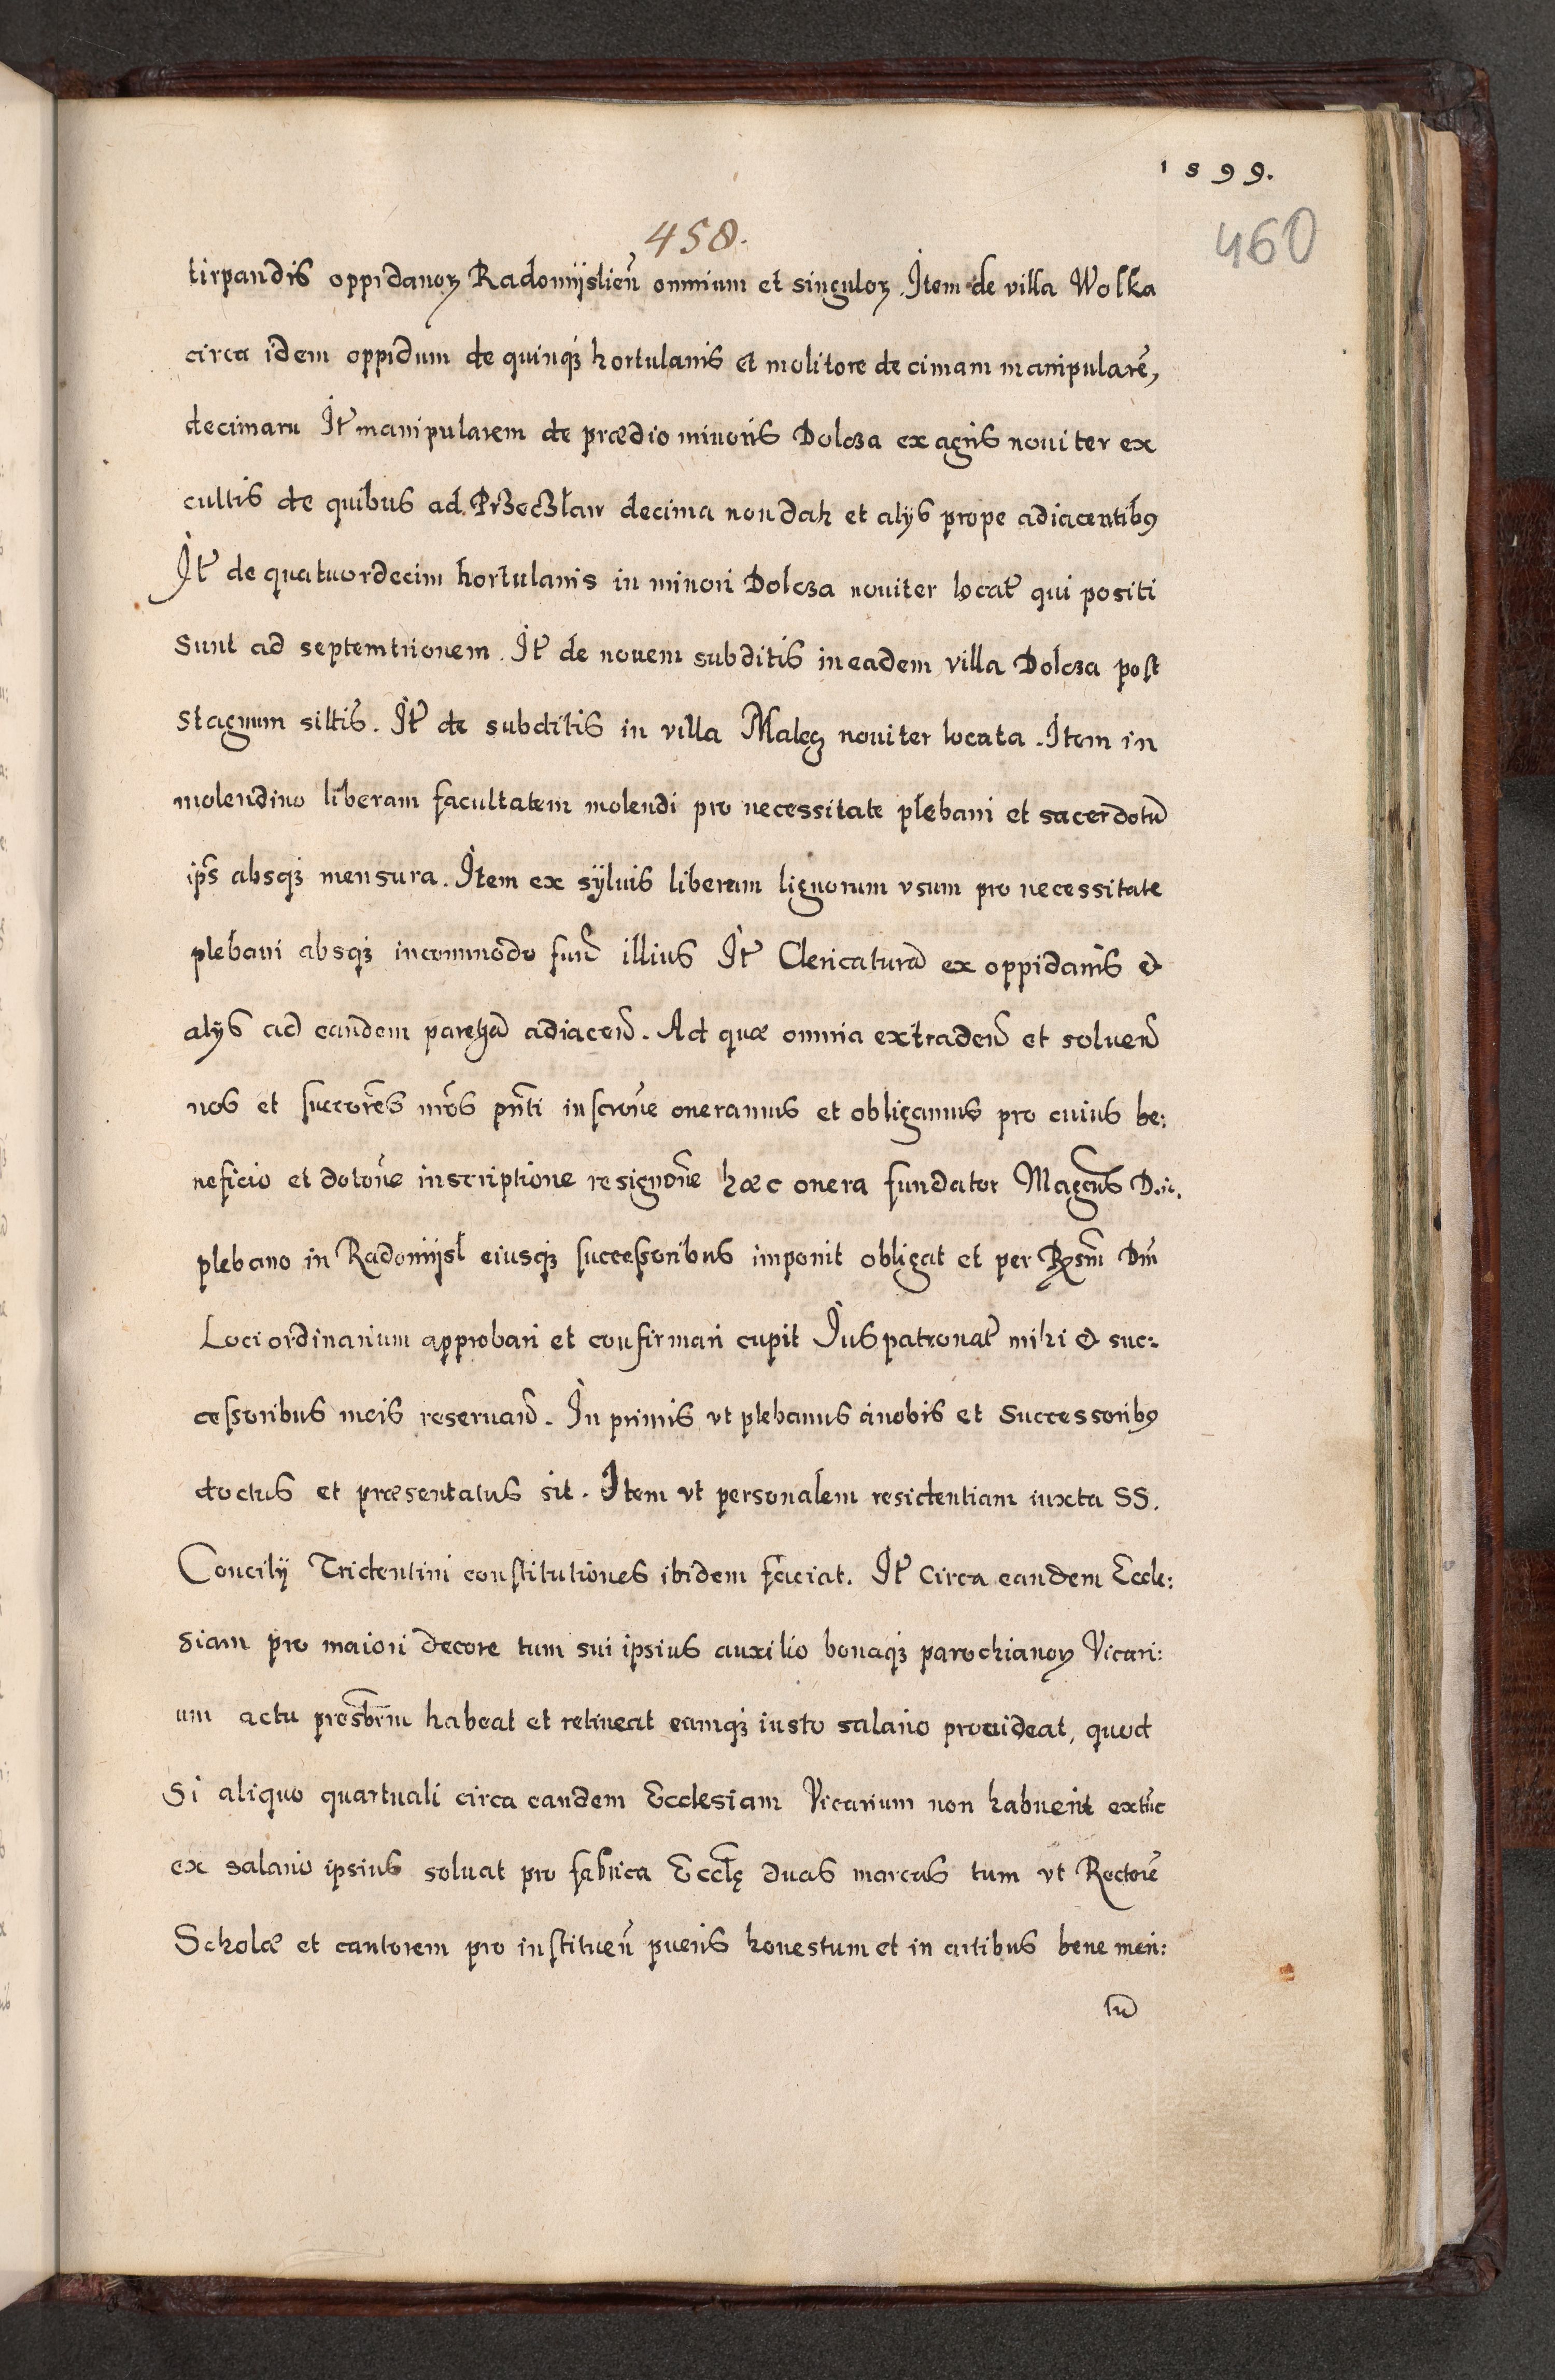 1599.
458.
460
tirpandis oppidanoꝝ Radomÿslien̄ omnium et singuloꝝ. Item de villa Wolka
circa idem oppidum de quinqꝫ hortulanis et molitore decimam manipularē,
decimam It̄ manipularem de prædio minoris Dolcza ex agris nouiter ex
cultis de quibus ad Przeczław decima non datꝛ et alijs prope adiacentibꝯ
It̄ de quatuordecim hortulanis in minori Dolcza nouiter locat̄ qui positi
sunt ad septemtrionem. It̄ de nouem subditis in eadem villa Dolcza post
stagnum siltis. It̄ de subditis in villa Malecz nouiter locata. Item in
molendino liberam facultatem molendi pro necessitate plebani et sacerdotū
ip̄s absqꝫ mensura. Item ex sÿluis liberum lignorum vsum pro necessitate
plebani absqꝫ incommodo fun̄ illius It̄ Clericaturā ex oppidanis &
alijs ad eandem parchā adiacen̄. Ad quæ omnia extraden̄ et soluen̄
nos et succores n̄ros pn̄ti inscrōne oneramus et obligamus pro cuius be:
neficio et dotōne inscriptione resignōne hæc onera fundator Magcus D.n.
plebano in Radomÿsl eiusqꝫ successoribus imponit obligat et per Rꝫsm̄ Dn̄m
Loci ordinarium approbari et confirmari cupit Ius patronat̄ mihi & suc:
cessoribus meis reseruan̄. In primis vt plebanus á nobis et successoribꝯ
doctus et præsentatus sit. Item vt personalem residentiam iuxta SS.
Concilij Tridentini constitutiones ibidem faciat. It̄ circa eandem Eccle:
siam pro maiori decore tum sui ipsius auxilio bonaqꝫ parochianoꝝ Vicari:
um actu presbr̄m habeat et retineat eamqꝫ iusto salario prouideat, quod
si aliquo quartuali circa eandem Ecclesiam Vicarium non habuerit extūc
ex salario ipsius soluat pro fabrica Eccl̄ę duas marcas tum vt Rectorē
Scholæ et cantorem pro instituen̄ pueris honestum et in artibus bene meri:
tū